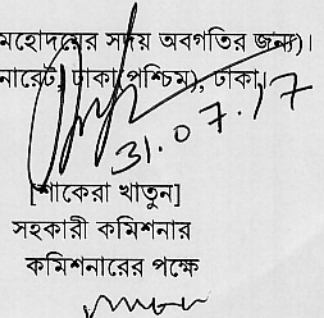 মহোদয়ের সদয় অবগতির জন্য)।
নারেট, ঢাকা (পশ্চিম), ঢাকা।
31.07.17
[শাকেরা খাতুন]
সহকারী কমিশনার
কমিশনারের পক্ষে